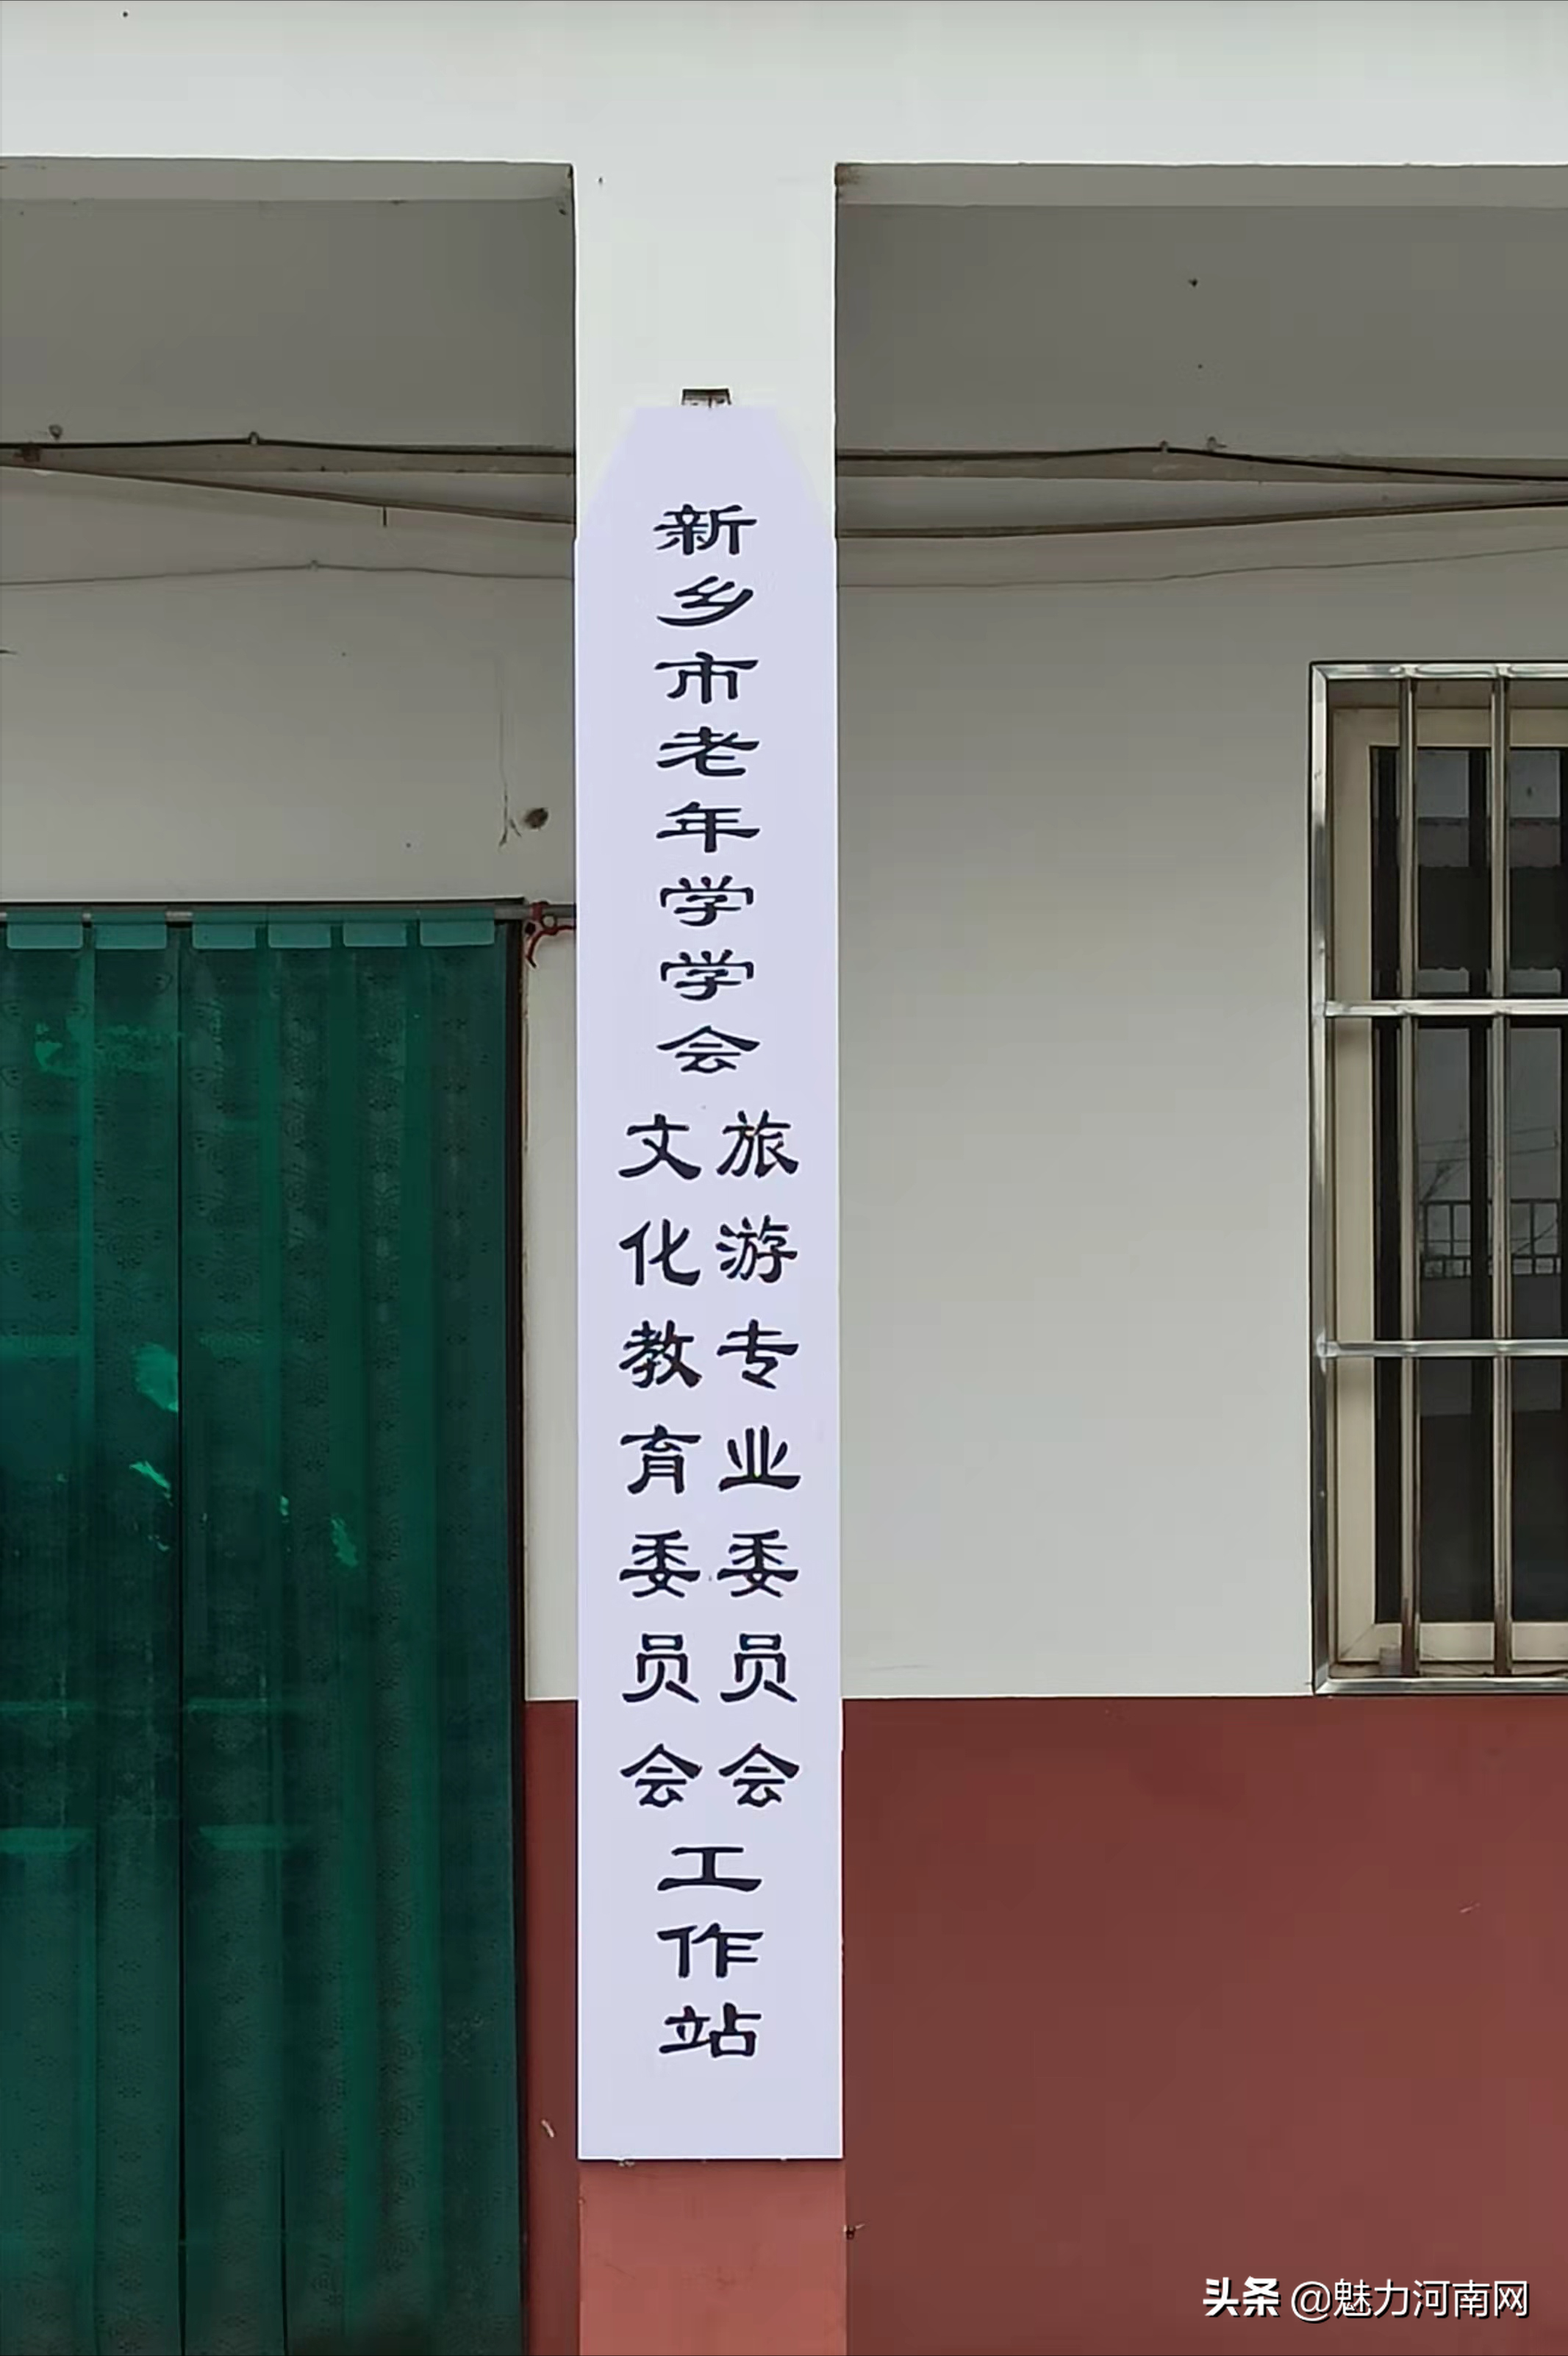 新乡市老年学学会
旅游专业委员会
文化教育委员会
工作站
头条 @魅力河南网